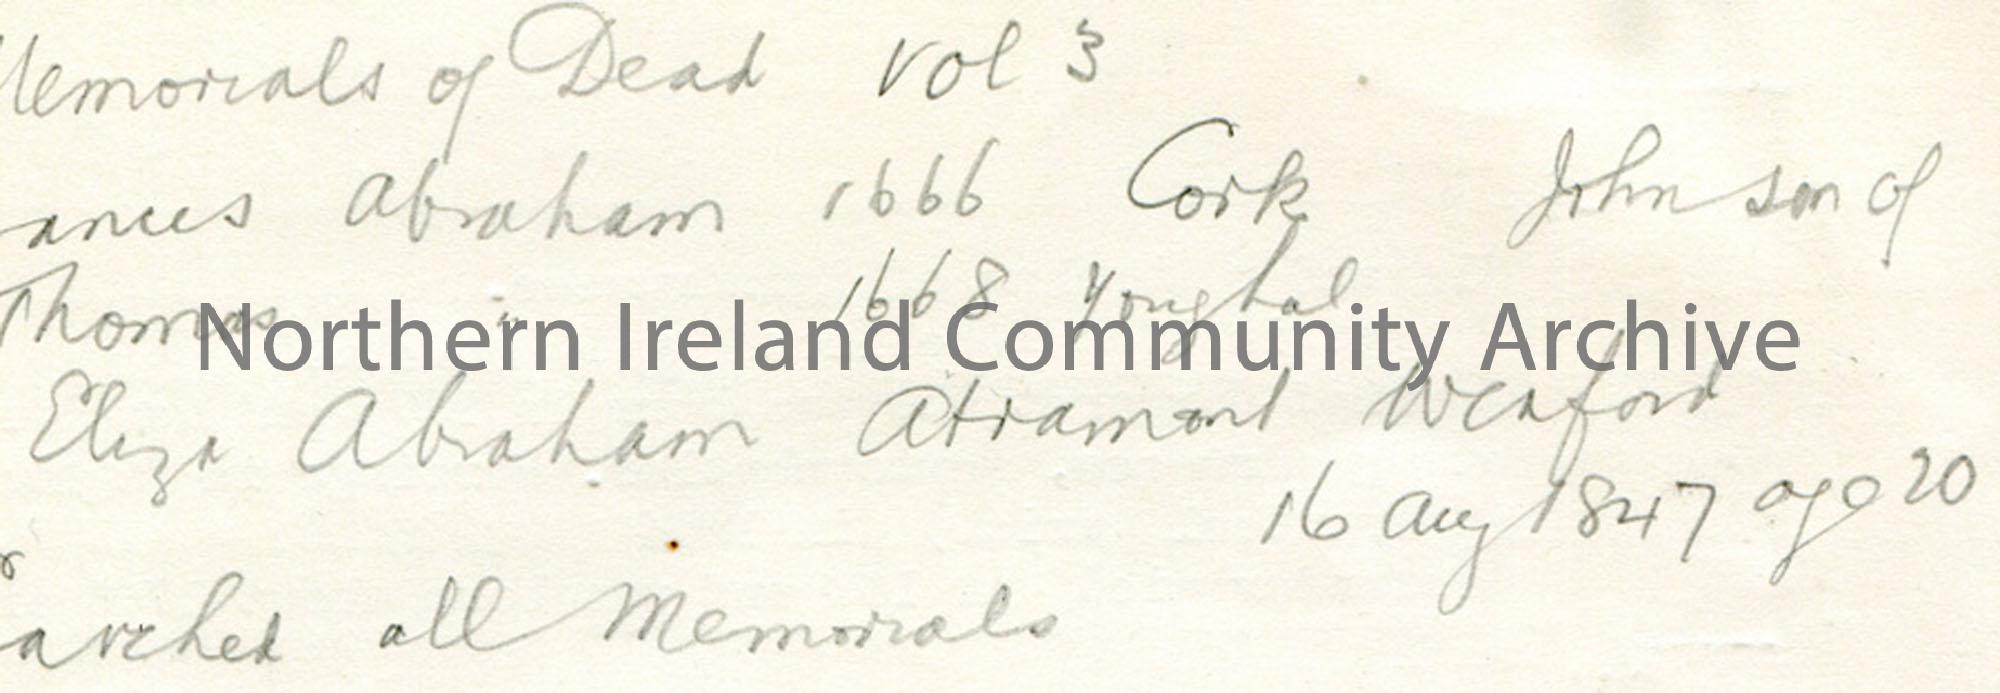 Memorials of Dead Vol 3
ances Abraham 1666 Cork John son of
Thomas " 1668 Youghal
Northern Ireland Community Archive
Eliza Abraham Atramont Wexford
16 Aug 1847 age 20
arched all Memorials